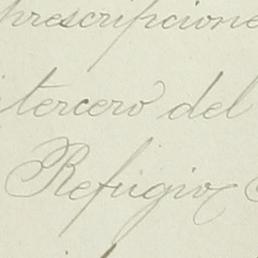 prescripcione
tercero del
Refugio